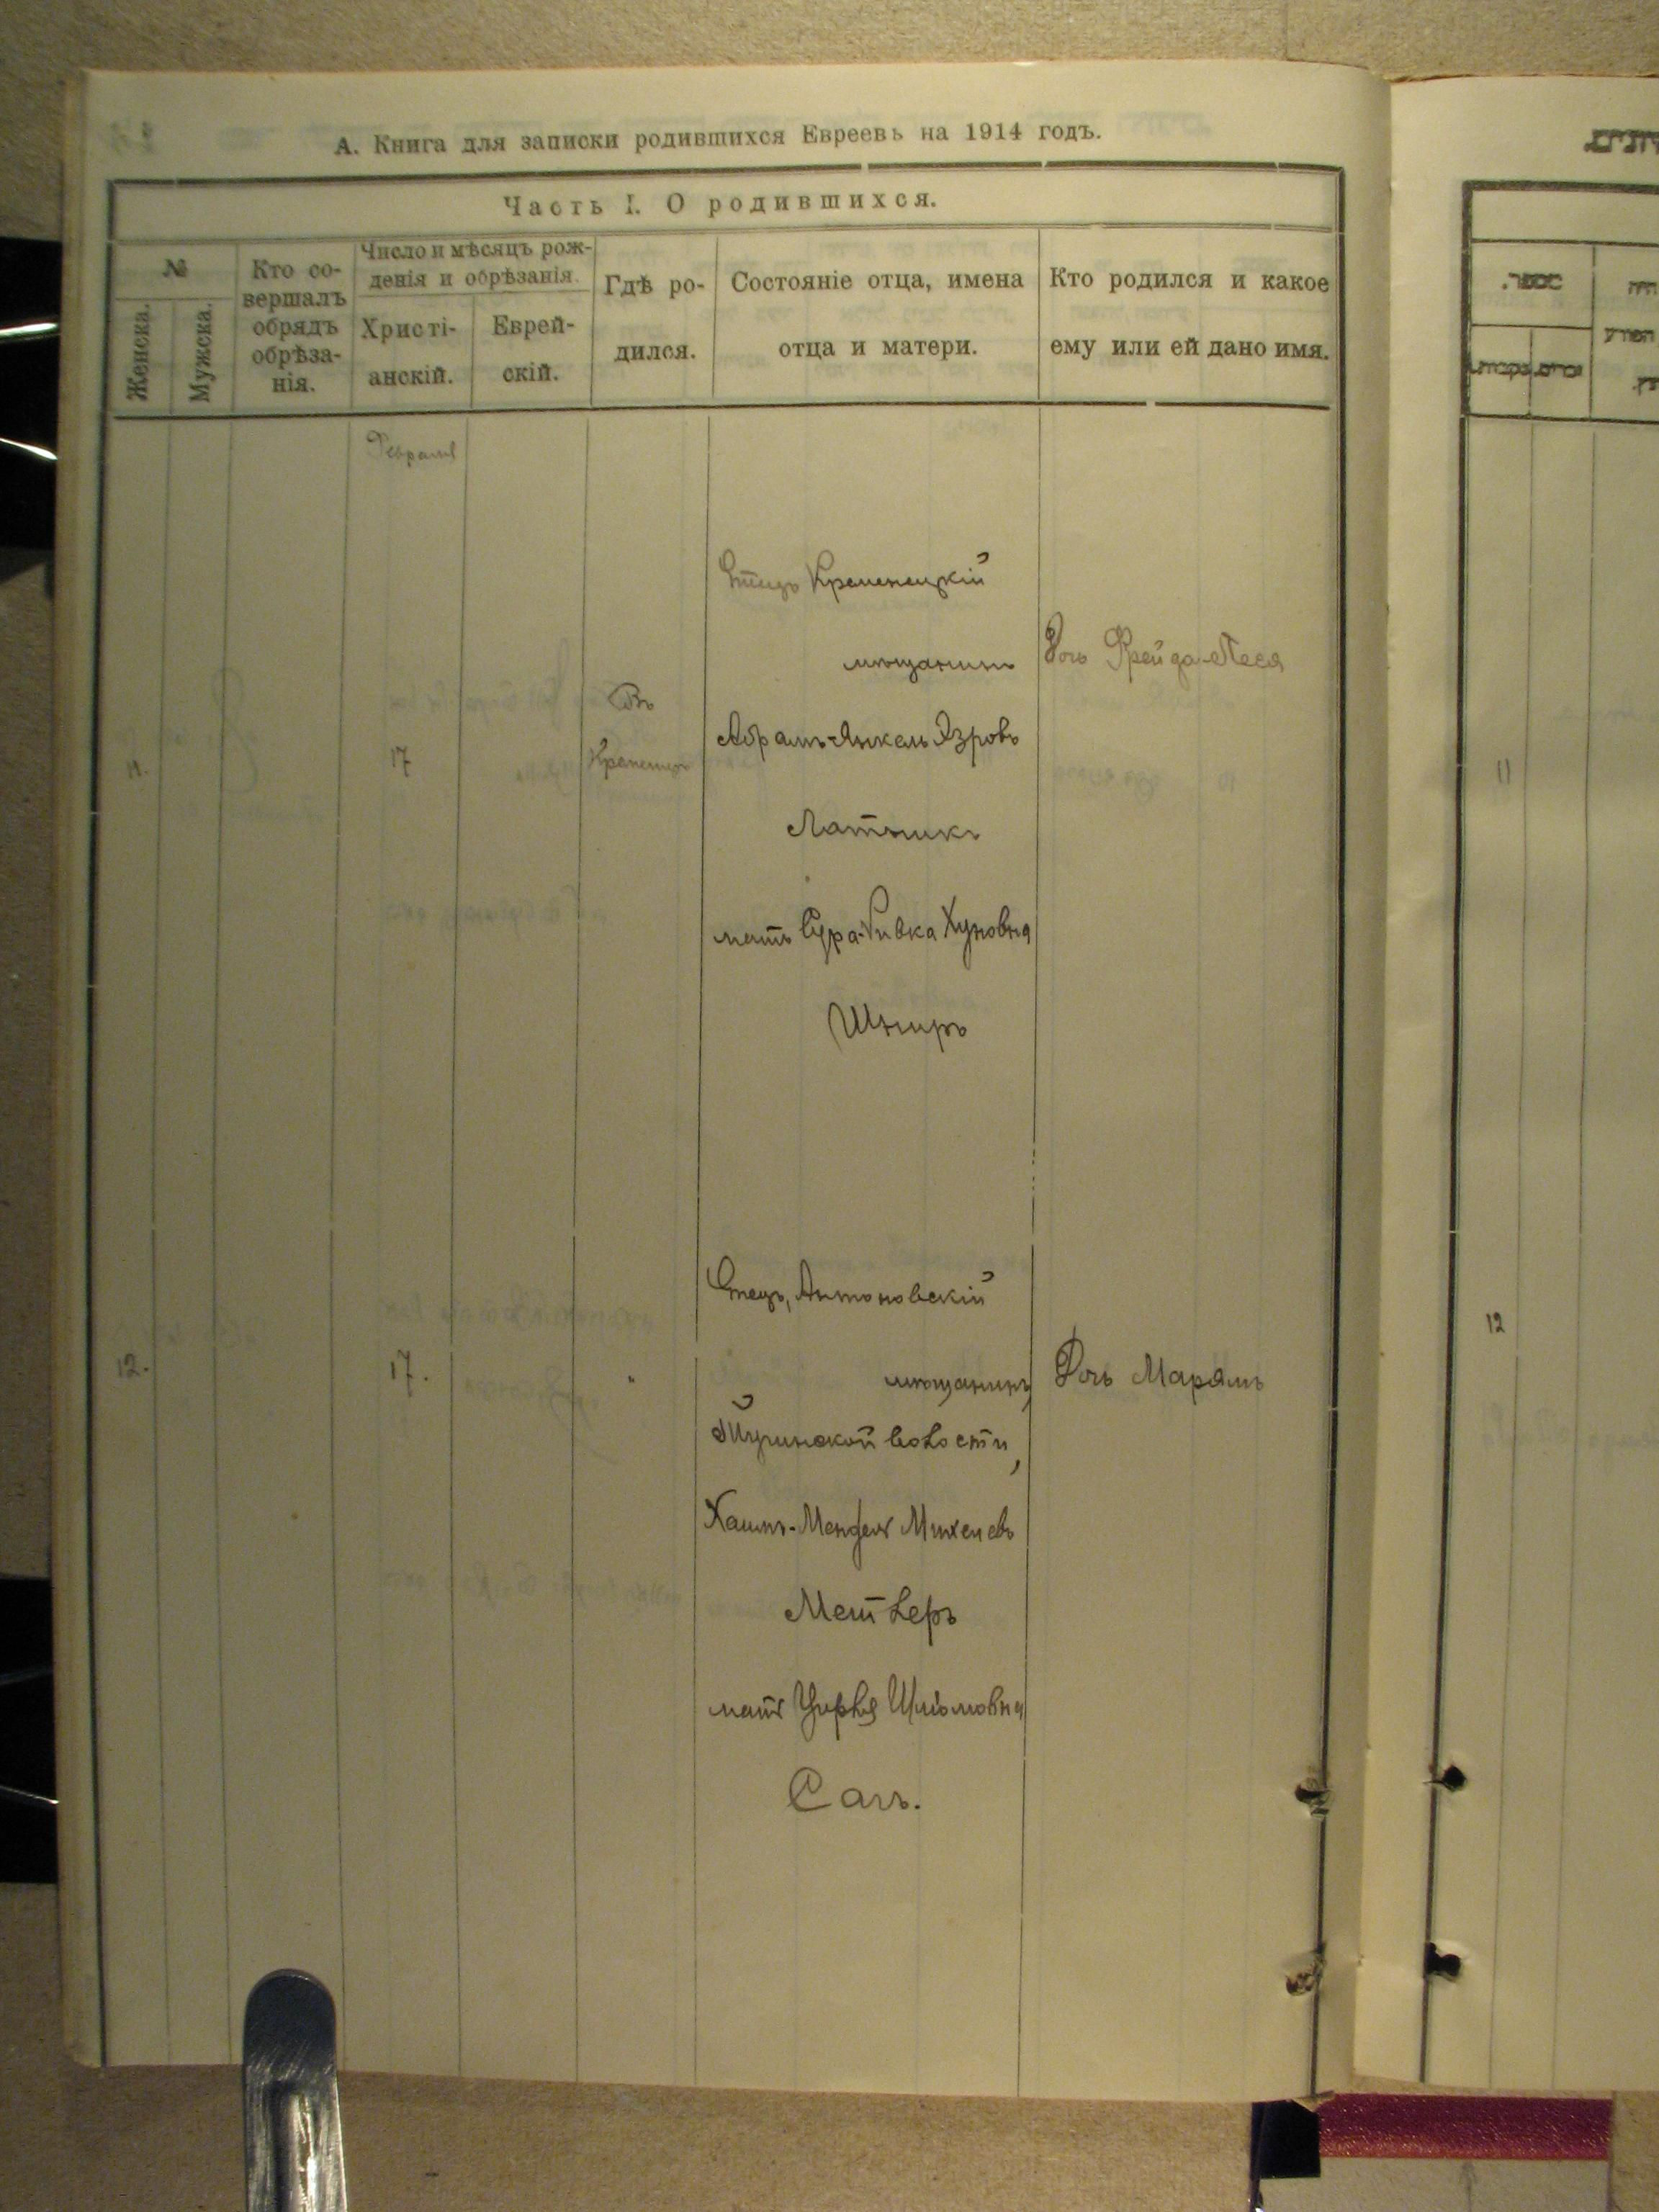 А. Книга для записки родившихся Евреевъ на 1914 годъ.
Часть I. О родившихся.
№
Женска.
Мужска.
Кто со-
вершалъ
обрядъ
обрѣза-
нія.
Число и мѣсяцъ рож-
денія и обрѣзанія.
Христі-
анскій.
Еврей-
скій.
Гдѣ ро-
дился.
Состояніе отца, имена
отца и матери.
Кто родился и какое
ему или ей дано имя.
Февраль
11.
17
Въ
Кременцѣ
Отецъ Кременецкій
мѣщанинъ
Абрамъ-Янкель Азровъ
Латышъ
мать Сура-Ривка Хуновна
Шниръ
Дочь Фрейда-Песя
12.
17.
"
Отецъ, Антоновскій
мѣщанинъ,
волости,
Хаимъ-Мендель Михелевъ
Метлеръ
мать Шлiомовна
Сагъ.
Дочь Марямъ
11
12